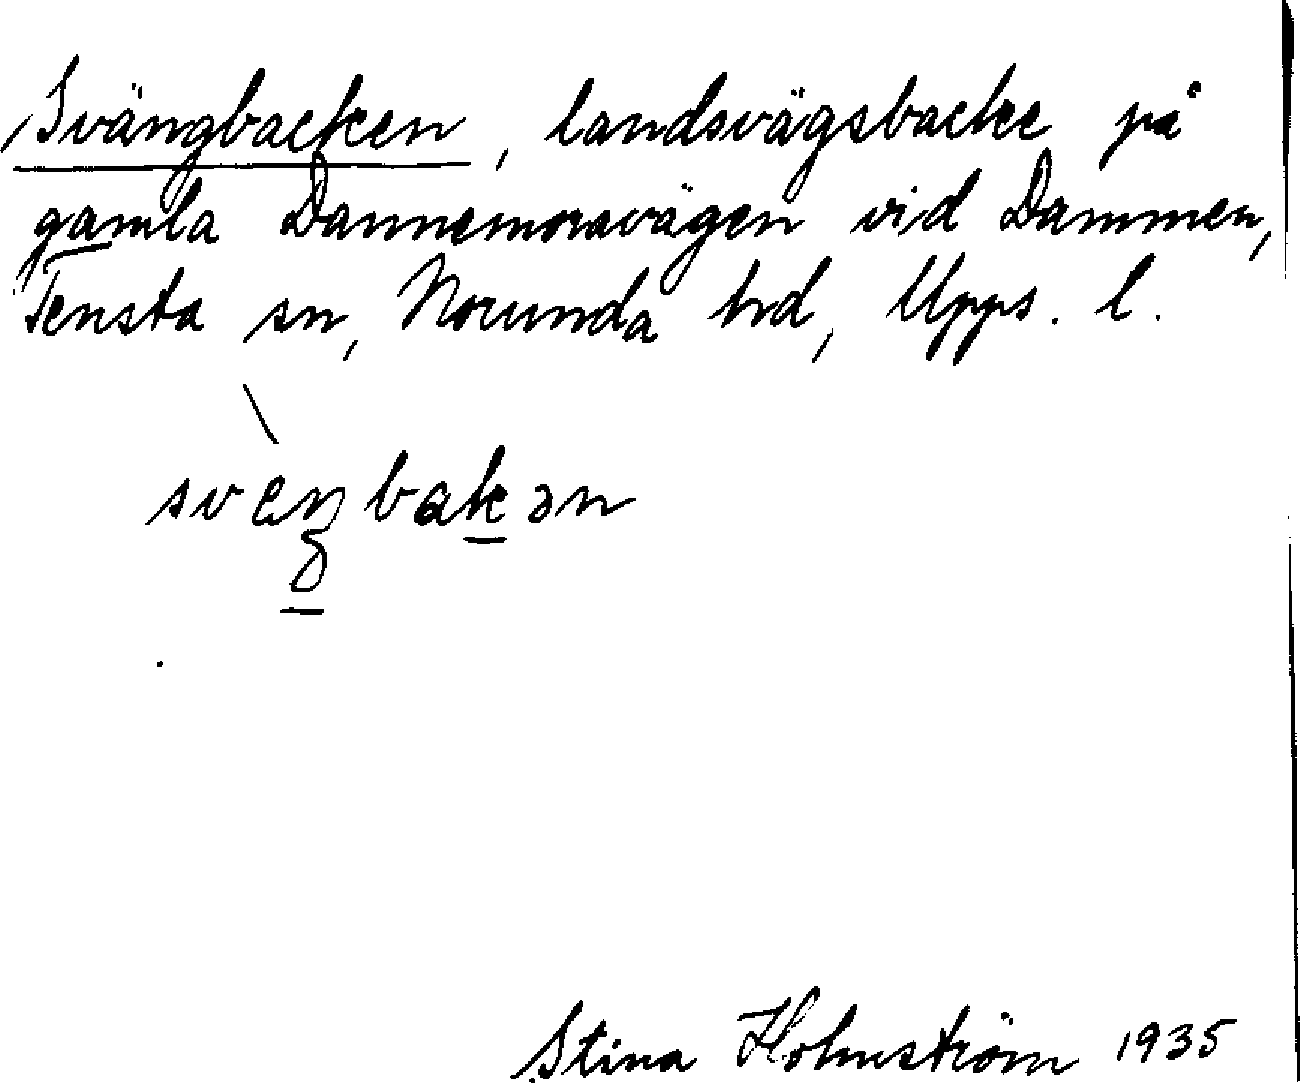 Svängbacken, landsvägsbacke på
gamla Dannemoravägen vid Dammen,
Tensta sn, Norunda hd, Upps. l.
sveŋbakən
Stina Holmström 1935